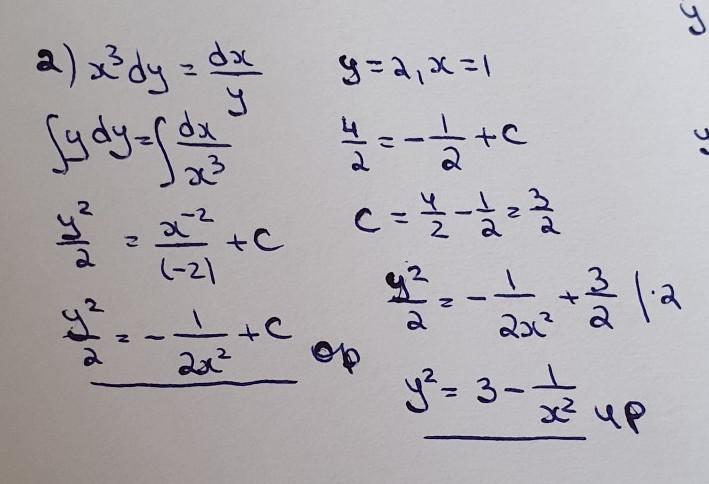 2) x³dy = dx/y
∫y dy = ∫dx/x³
y²/2 = x⁻²/(-2) + C
y²/2 = -1/(2x²) + C ор
y = 2, x = 1
4/2 = -1/2 + C
C = 4/2 - 1/2 = 3/2
y²/2 = -1/(2x²) + 3/2 | ·2
y² = 3 - 1/x² чр
y
y